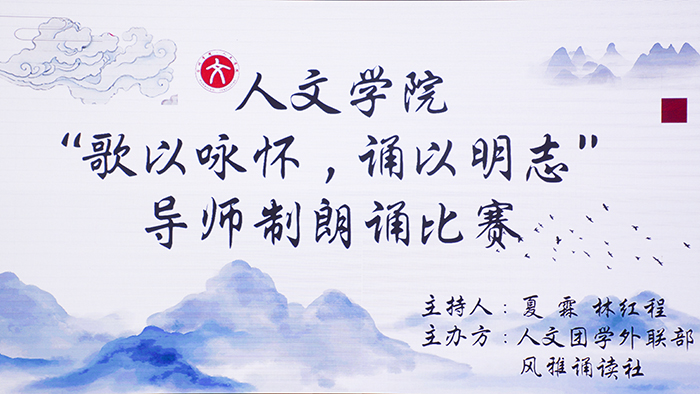 人文学院
“歌以咏怀，诵以明志”
导师制朗诵比赛
主持人：夏霖 林红程
主办方：人文团学外联部
风雅诵读社